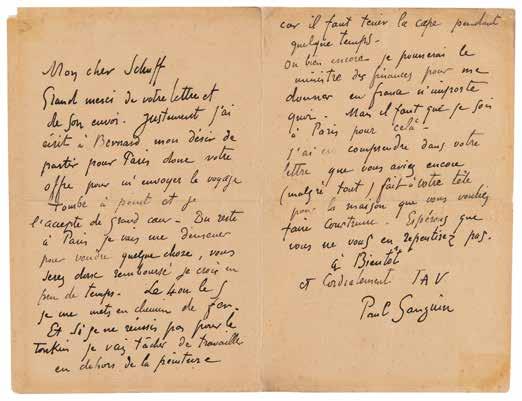 Mon cher Schuff
Grand merci de votre lettre et
de son envoi. Justement j'ai
écrit à Bernard mon désir de
partir pour Paris donc votre
offre pour m'envoyer le voyage
tombe à point et je
l'accepte de grand cœur - Du reste
à Paris je vais me démener
pour vendre quelque chose, vous
serez donc remboursé je crois en
peu de temps. Le 4 ou le 5
je me mets en chemin de fer.
Et si je ne réussis pas pour le
Tonkin je vais tâcher de travailler
en dehors de la peinture
car il faut tenir la cape pendant
quelque temps -
Ou bien encore je pousserai le
ministre des finances pour me
donner en n'importe
quoi. Mais il faut que je sois
à Paris pour cela -
J'ai cru comprendre dans votre
lettre que vous aviez encore
(malgré tout) fait à votre tête
pour la maison que vous vouliez
faire construire. Espérons que
vous ne vous en repentirez pas.
à Bientôt
et Cordialement TAV
Paul Gauguin